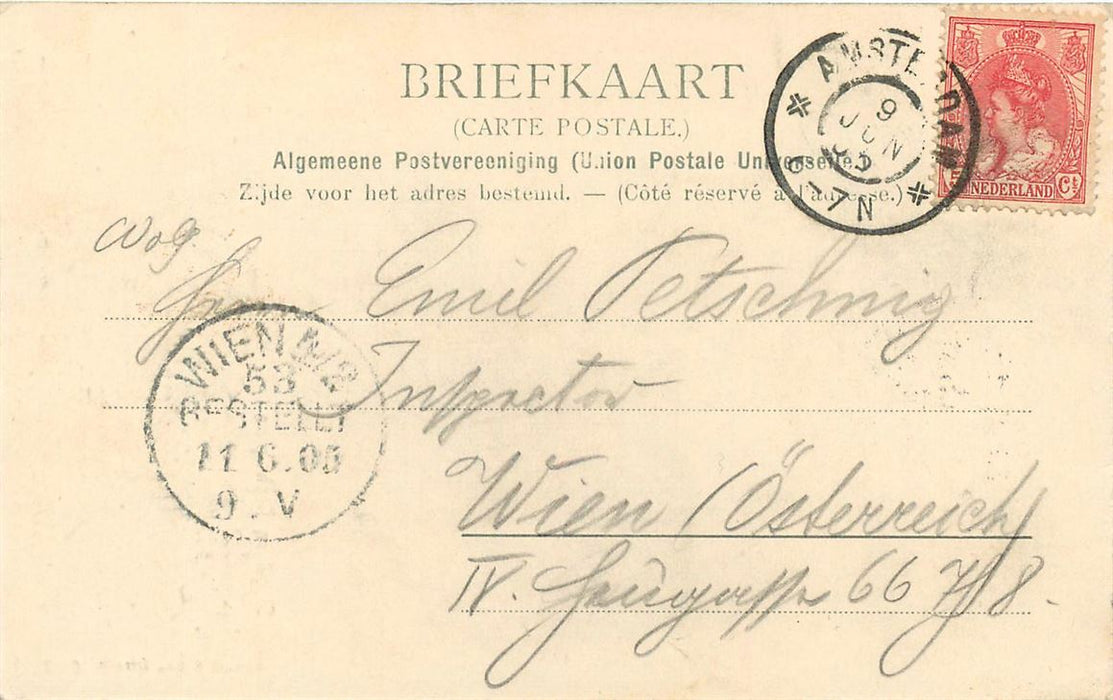 BRIEFKAART
(CARTE POSTALE.)
Algemeene Postvereeniging (Union Postale Universelle.)
Zijde voor het adres bestemd. — (Côté réservé à l'adresse.)
AMSTERDAM
9
JUN
05
6-7 N
NEDERLAND
Ct
Emil Petschnig
Inspector
Wien (Österreich)
IV. 66 7/8.
WIEN 4/2
53
BESTELLT
11 6.05
9. V